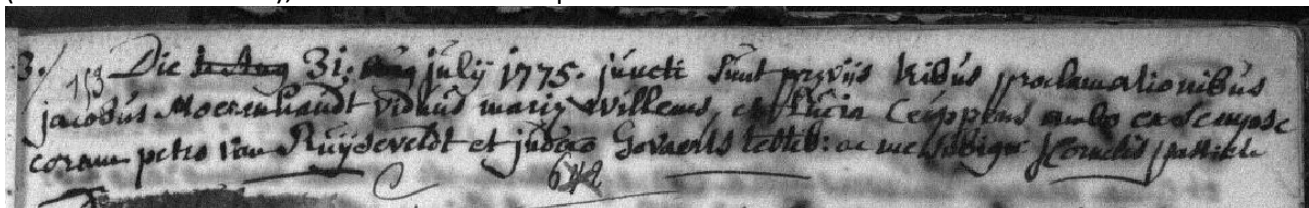 3./ 153 Die 31. julij 1775. juncti sunt prævijs tribus proclamationibus
jacobus Moerenhaudt viduus mariæ willems, et Lucia Ceuppens ambo ex Sempse
coram petro van Ruijseveldt et judoco Govaerts testib: ac me J Cornelis
642